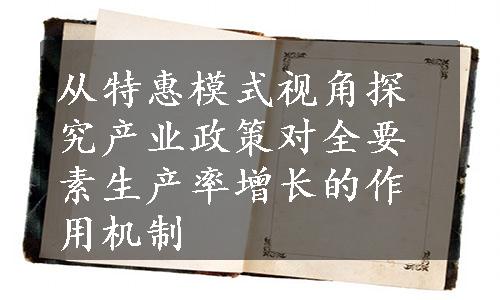 从特惠模式视角探
究产业政策对全要
素生产率增长的作
用机制